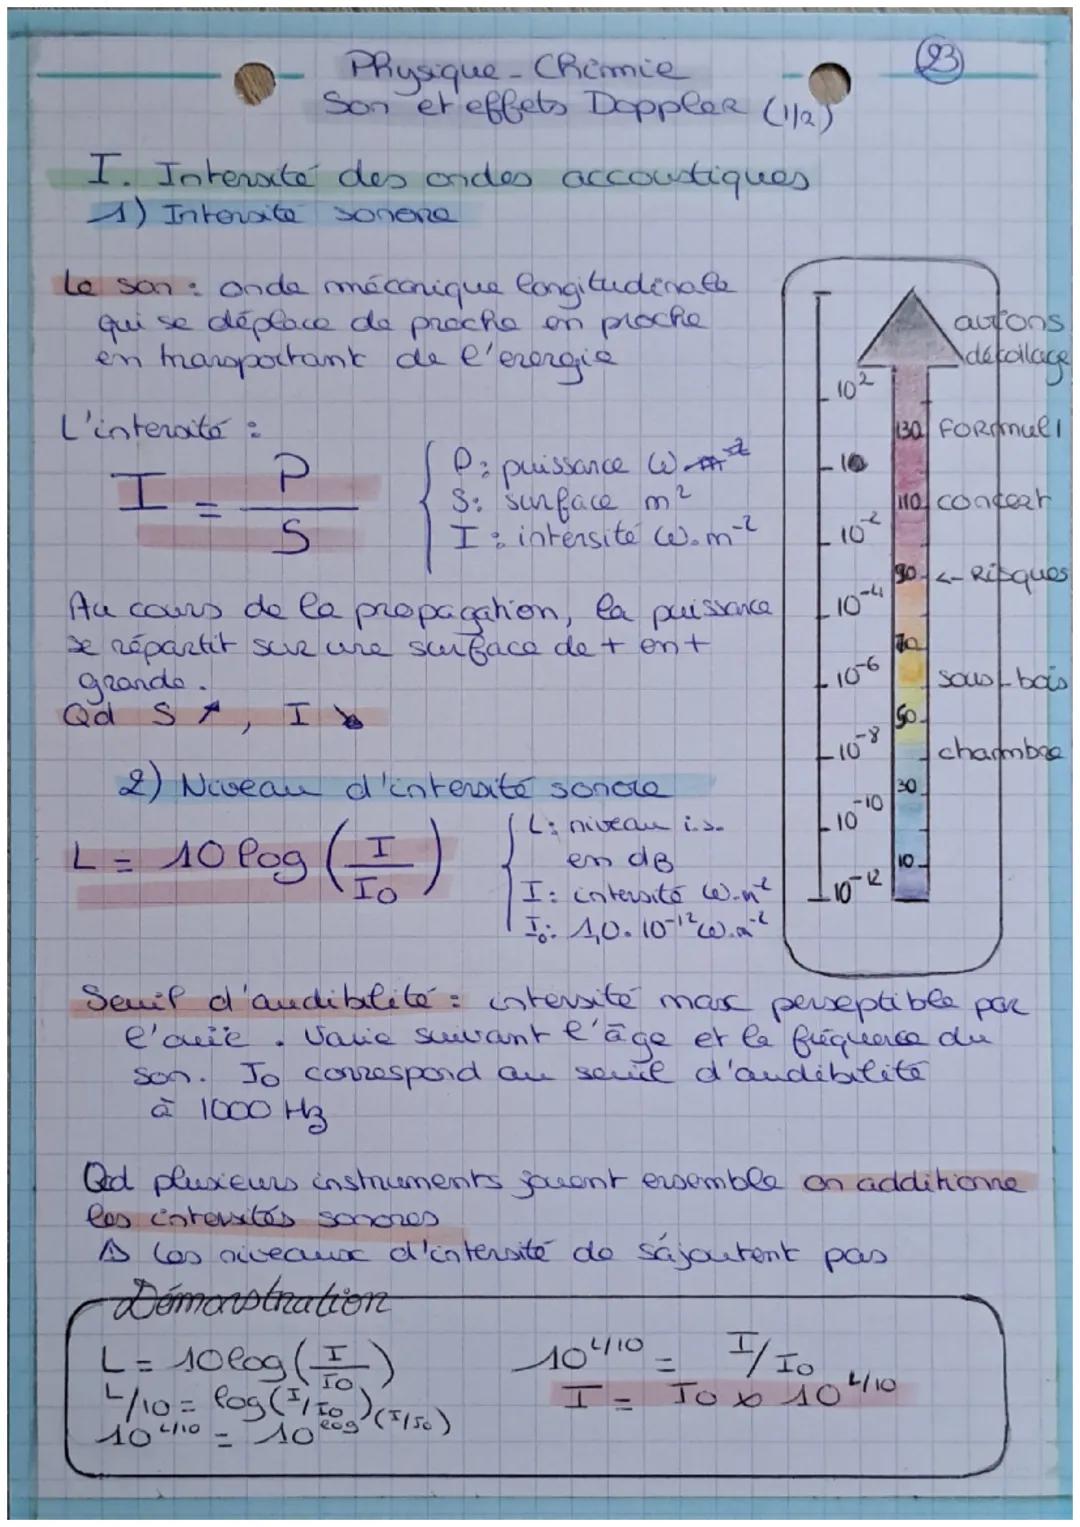 23
Physique - Chimie
Son et effets Doppler (1/2)
I. Intensité des ondes accoustiques
1) Intensité sonore
Le son : onde mécanique longitudinale
qui se déplace de proche en proche
en transportant de l'énergie
L'intensité :
I = P/S
P: puissance W
S: surface m²
I : intensité W.m⁻²
Au cours de la propagation, la puissance
se répartit sur une surface de + en +
grande.
Qd S ↗, I ↘
2) Niveau d'intensité sonore
L = 10 log (I/I₀)
L: niveau i.s.
en dB
I: intensité W.m⁻²
I₀: 1,0.10⁻¹² W.m⁻²
avions
décollage
10²
130 FORMUL1
10
110 concert
10⁻²
90 <- Risques
10⁻⁴
70
10⁻⁶
sous-bois
50
10⁻⁸
chambre
30
10⁻¹⁰
10
10⁻¹²
Seuil d'audibilité : intensité max perseptible par
l'ouïe. Varie suivant l'âge et la fréquence du
son. I₀ correspond au seuil d'audibilité
à 1000 Hz
Qd plusieurs instruments jouent ensemble on additionne
les intensités sonores
⚠ Les niveaux d'intensité de s'ajoutent pas
Démonstration
L = 10log(I/I₀)
L/10 = log(I/I₀)
10^(L/10) = 10^(log(I/I₀))
10^(L/10) = I/I₀
I = I₀ x 10^(L/10)